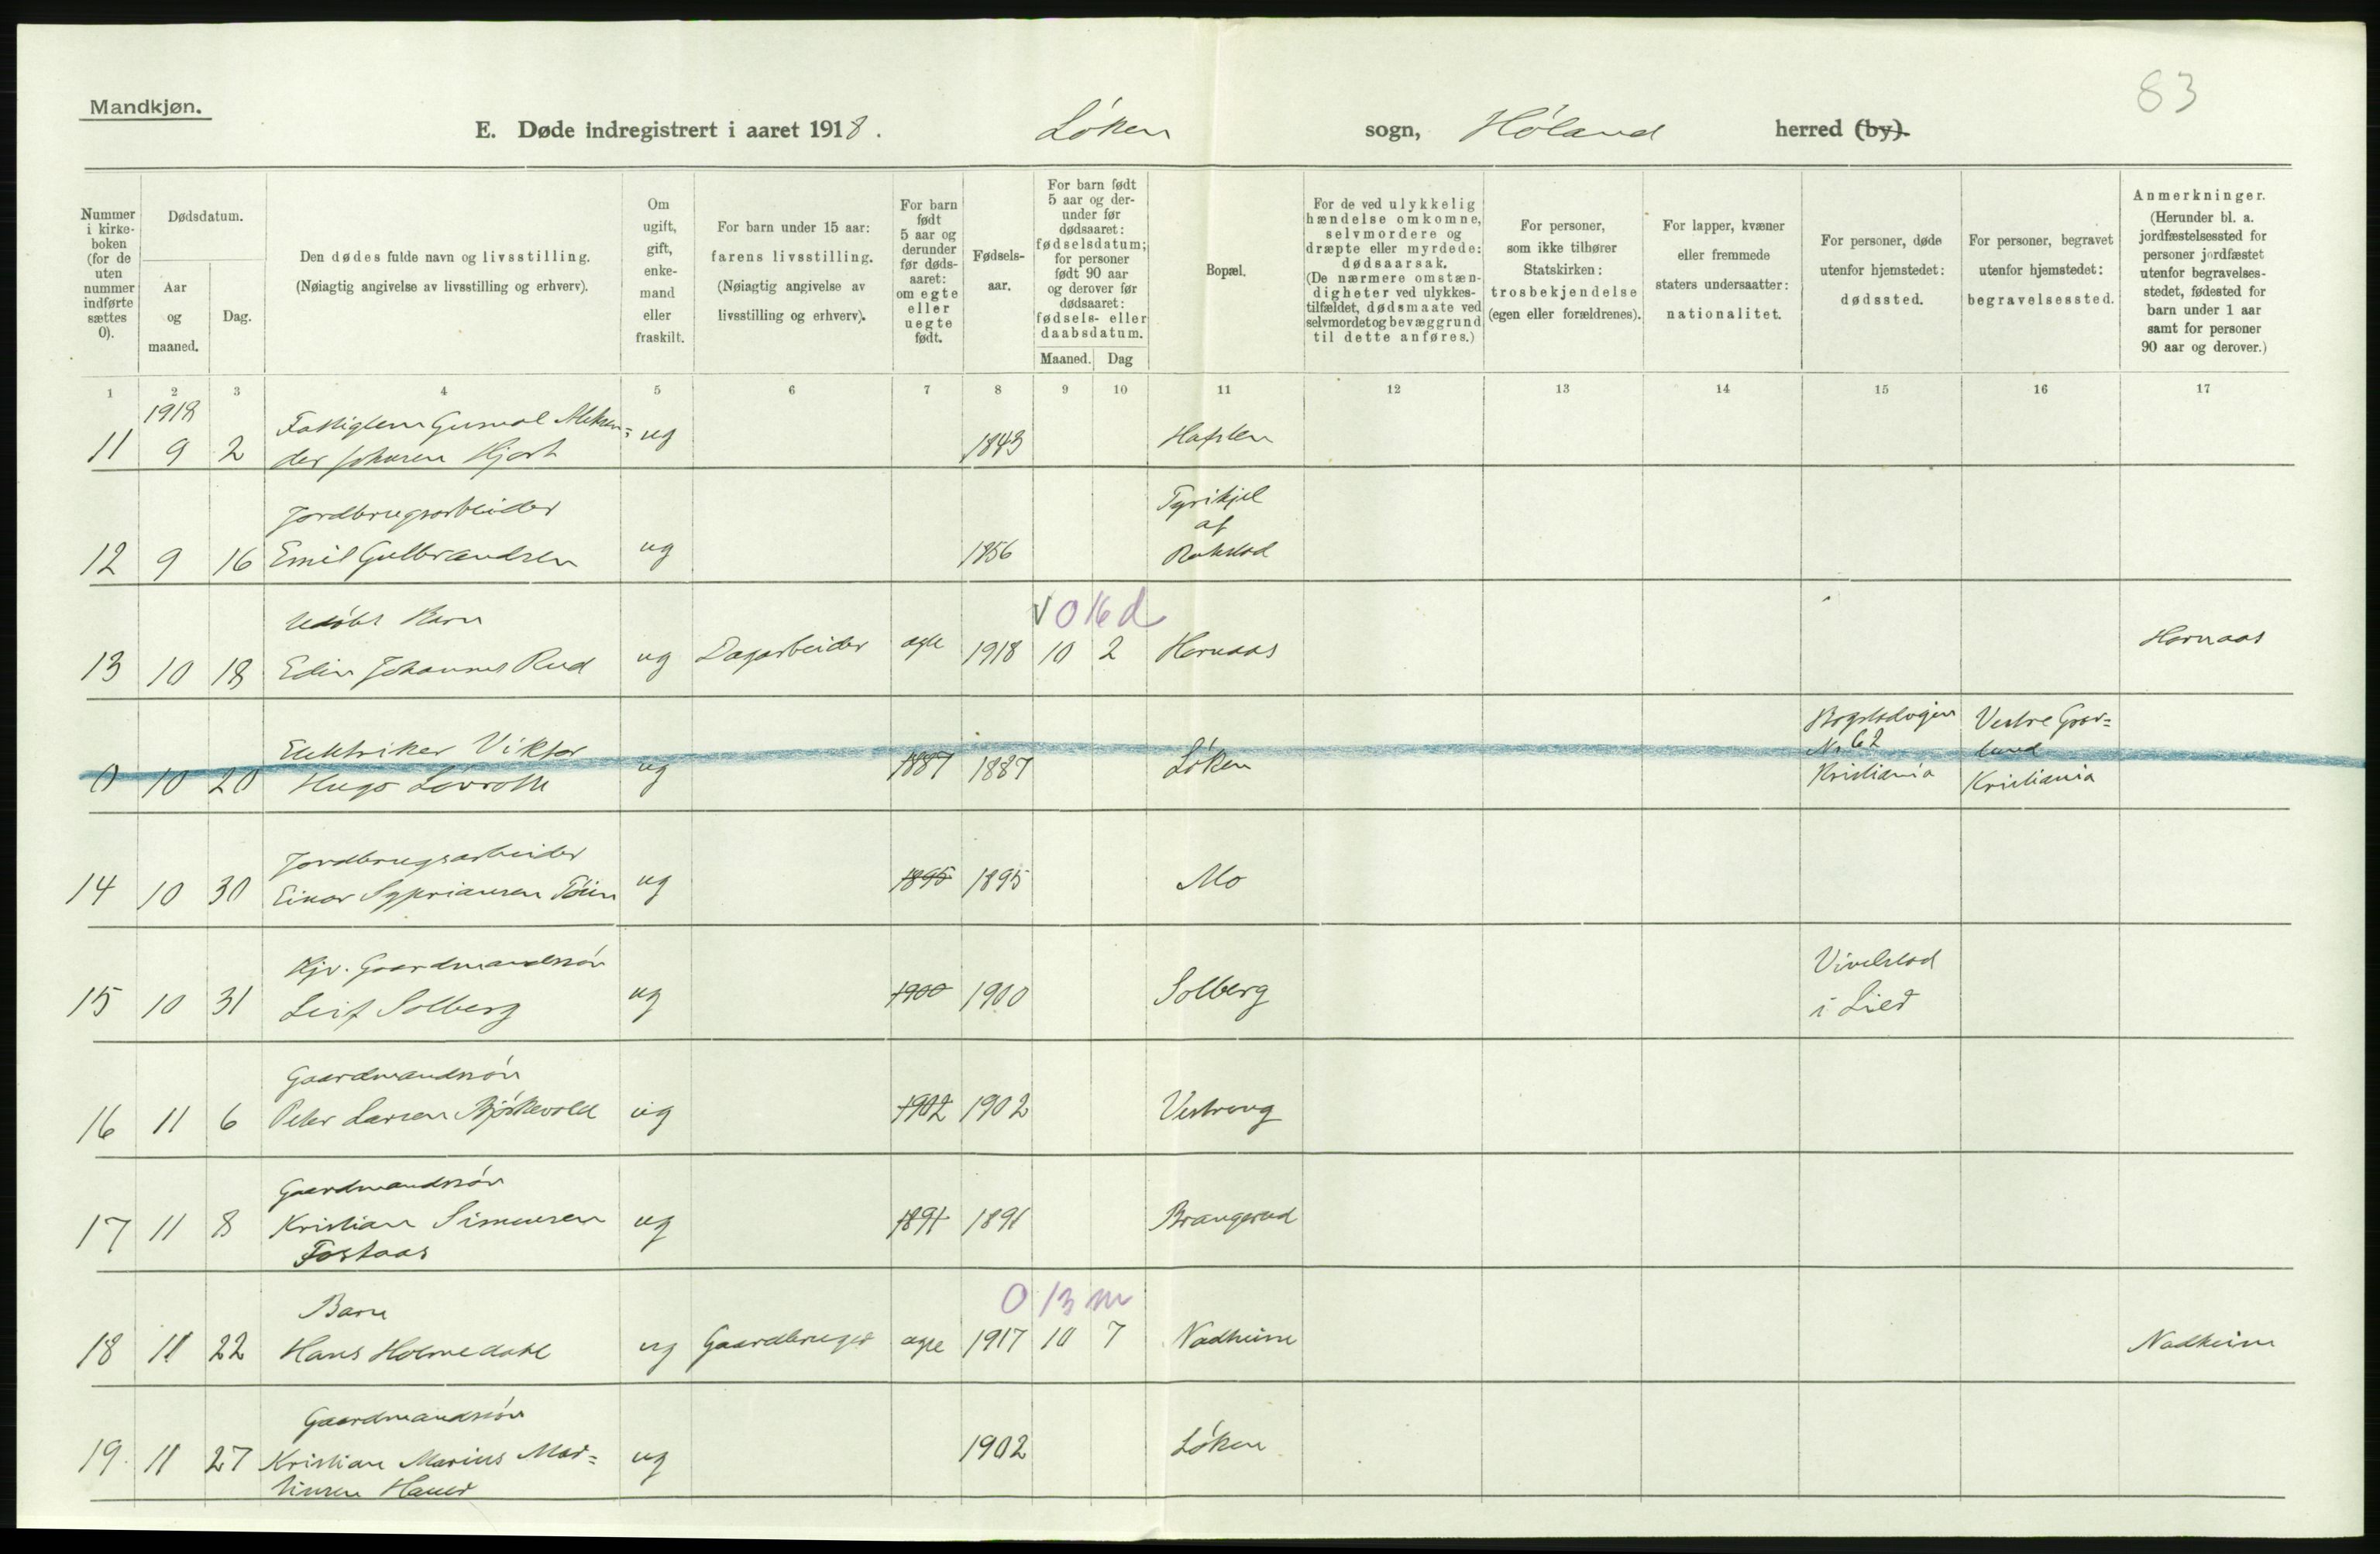 83
Mandkjøn.
E. Døde indregistrert i aaret 1918. Løken sogn, Høland herred (by).
Nummer i kirkeboken (for de uten nummer indførte sættes 0).
Dødsdatum.
Aar og maaned.
Dag.
Den dødes fulde navn og livsstilling.
(Nøiagtig angivelse av livsstilling og erhverv).
Om ugift, gift, enkemand eller fraskilt.
For barn under 15 aar: farens livsstilling.
(Nøiagtig angivelse av livsstilling og erhverv).
For barn født 5 aar og derunder før dødsaaret: om egte eller uegte født.
Fødselsaar.
For barn født 5 aar og derunder før dødsaaret: fødselsdatum; for personer født 90 aar og derover før dødsaaret: fødsels- eller daabsdatum.
Maaned. Dag
Bopæl.
For de ved ulykkelig hændelse omkomne, selvmordere og dræpte eller myrdede: dødsaarsak.
(De nærmere omstændigheter ved ulykkestilfældet, dødsmaate ved selvmordet og bevæggrund til dette anføres.)
For personer, som ikke tilhører Statskirken: trosbekjendelse (egen eller forældrenes).
For lapper, kvæner eller fremmede staters undersaatter: nationalitet.
For personer, døde utenfor hjemstedet: dødssted.
For personer, begravet utenfor hjemstedet: begravelsessted.
Anmerkninger.
(Herunder bl. a. jordfæstelsessted for personer jordfæstet utenfor begravelsesstedet, fødested for barn under 1 aar samt for personer 90 aar og derover.)
1 2 3 4 5 6 7 8 9 10 11 12 13 14 15 16 17
1918
11 9 2 Fattiglem Aleksan=
der Johnsen Hjort ug 1843
Jordbrugsarbeider
12 9 16 Emil Gulbrandsen ug 1856
af
Udøbt Barn V 0 16 d
13 10 18 Edin Johannes Rud ug Dagarbeider egte 1918 10 2 Hornaas Hornaas
Elektriker Viktor
0 10 20 Hugo ug 1887 1887 Løken No 62 Kristiania Vestre Grav=
lund
Kristiania
Jordbrugsarbeider
14 10 30 Einar Sypriansen ug 1895 1895 Mo
Hjv. Gaardmandssøn
15 10 31 Leif Solberg ug 1900 1900 Solberg
i Lier
Gaardmandssøn
16 11 6 Peter Larsen ug 1902 1902 Vestreng
Gaardmandssøn
17 11 8 Kristian Simensen ug 1891 1891 Brangerud
Fostaas
Barn 0 13 m
18 11 22 Hans Holmedahl ug Gaardbruger egte 1917 10 7 Nadheim Nadheim
Gaardmandssøn
19 11 27 Kristian Marius Mar=
tinsen Haner ug 1902 Løken